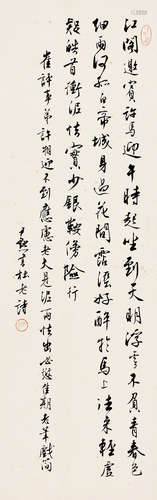 江閣邀賓許馬迎午時起坐到天明浮雲不負青春色
細雨何孤白帝城身過花間霑濕好醉於馬上往來輕虛
疑皓首衝泥怯實少銀鞍傍險行
崔評事弟許相迎不到應慮老夫見泥雨怯出必愆佳期走筆戲簡
尹默書杜老詩